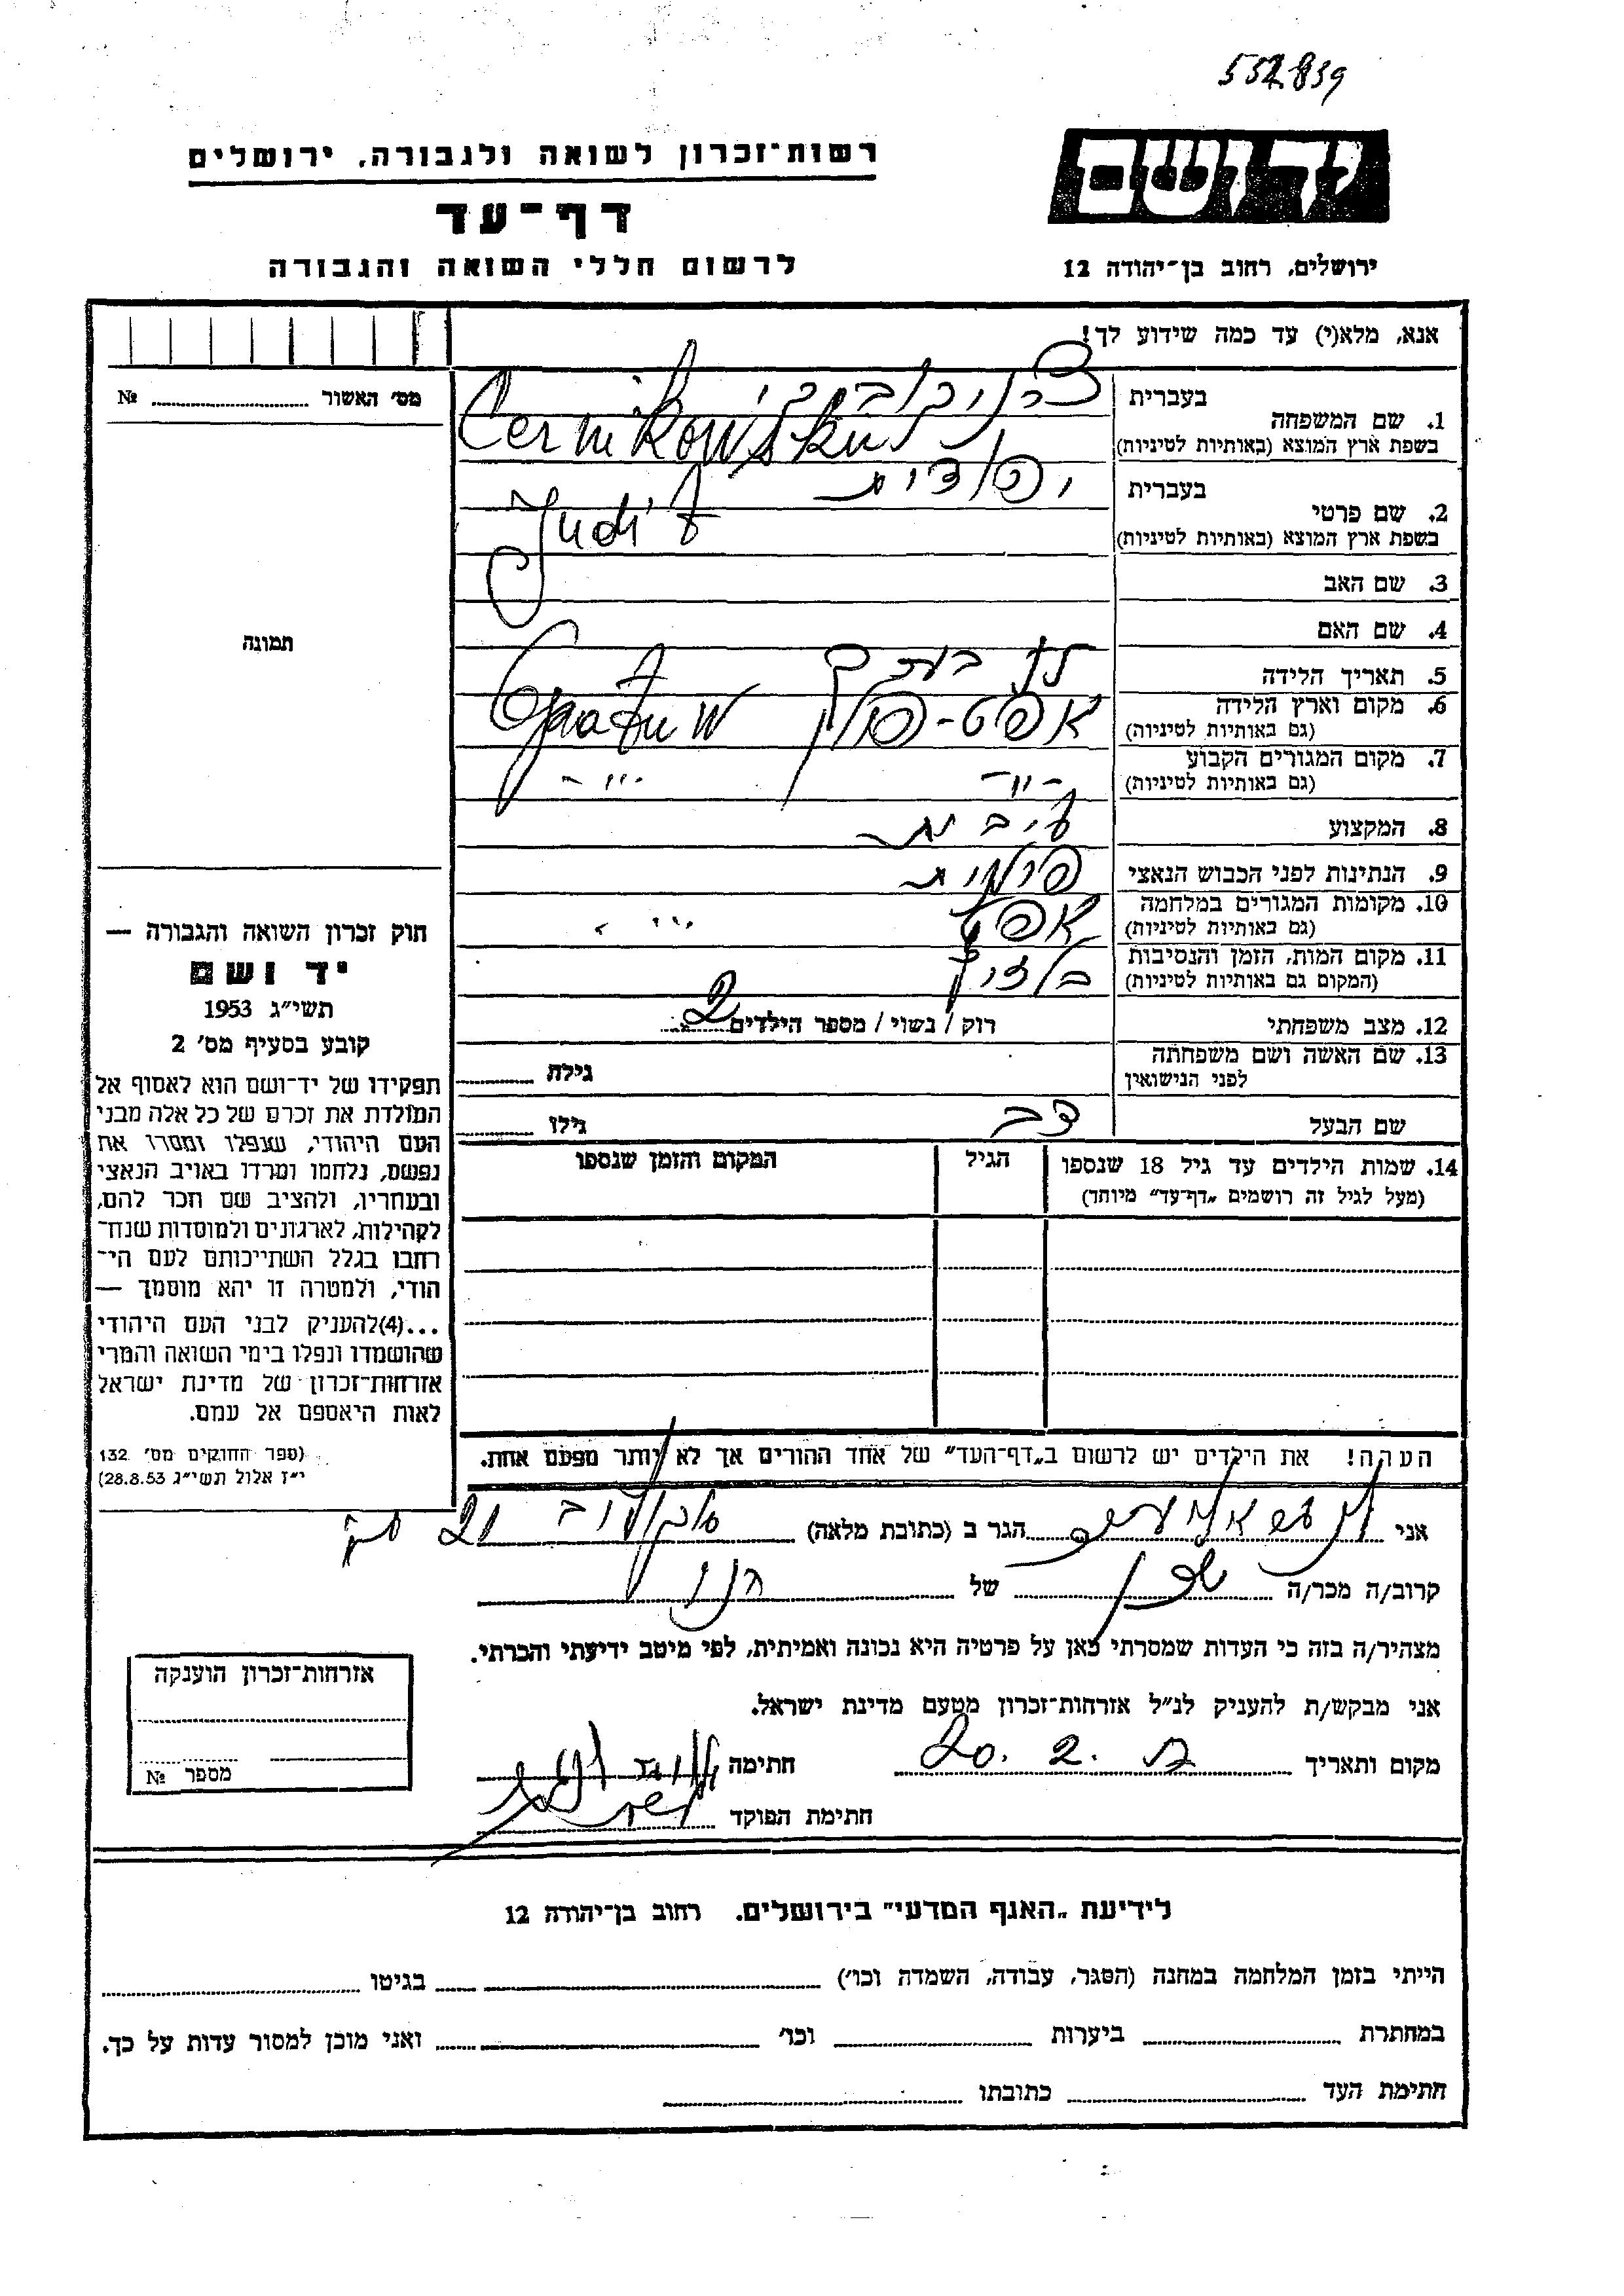 532839
רשות־זכרון לשואה ולגבורה, ירושלים
יד ושם
דף־עד
לרשום חללי השואה והגבורה
ירושלים, רחוב בן־יהודה 12
אנא, מלא(י) עד כמה שידוע לך!
מס׳ האשור № 
1. שם המשפחה
בעברית
בשפת ארץ המוצא (באותיות לטיניות)
Cernikowski
2. שם פרטי
בעברית יהודית
בשפת ארץ המוצא (באותיות לטיניות)
Judit
3. שם האב
4. שם האם
5. תאריך הלידה
6. מקום וארץ הלידה אפט-פולין
(גם באותיות לטיניות) Opatuw
7. מקום המגורים הקבוע -״-
(גם באותיות לטיניות) -״-
8. המקצוע
9. הנתינות לפני הכבוש הנאצי פולנית
10. מקומות המגורים במלחמה אפט
(גם באותיות לטיניות) ״
11. מקום המות, הזמן והנסיבות
(המקום גם באותיות לטיניות)
12. מצב משפחתי רוק / נשוי / מספר הילדים 2
13. שם האשה ושם משפחתה
לפני הנישואין
גילה
שם הבעל צבי
גילו
14. שמות הילדים עד גיל 18 שנספו
(מעל לגיל זה רושמים „דף־עד״ מיוחד)
הגיל
המקום והזמן שנספו
הערה! את הילדים יש לרשום ב„דף־העד״ של אחד ההורים אך לא יותר מפעם אחת.
תמונה
חוק זכרון השואה והגבורה —
יד ושם
תשי״ג 1953
קובע בסעיף מס׳ 2
תפקידו של יד־ושם הוא לאסוף אל
המולדת את זכרם של כל אלה מבני
העם היהודי, שנפלו ומסרו את
נפשם, נלחמו ומרדו באויב הנאצי
ובעוזריו, ולהציב שם וזכר להם,
לקהילות, לארגונים ולמוסדות שנח־
רחבו בגלל השתייכותם לעם הי־
הודי, ולמטרה זו יהא מוסמך —
...(4)להעניק לבני העם היהודי
שהושמדו ונפלו בימי השואה והמרי
אזרחות־זכרון של מדינת ישראל
לאות היאספם אל עמם.
(ספר החוקים מס׳ 132
י״ז אלול תשי״ג 28.8.53)
אני
הגר ב (כתובת מלאה) 21
קרוב/ה מכר/ה שכן של הנ״ל
מצהיר/ה בזה כי העדות שמסרתי כאן על פרטיה היא נכונה ואמיתית, לפי מיטב ידיעתי והכרתי.
אני מבקש/ת להעניק לנ״ל אזרחות־זכרון מטעם מדינת ישראל.
מקום ותאריך 20. 2.
חתימה
חתימת הפוקד
אזרחות־זכרון הוענקה
מספר №
לידיעת „האגף המדעי״ בירושלים. רחוב בן־יהודה 12
הייתי בזמן המלחמה במחנה (הסגר, עבודה, השמדה וכו׳) בגיטו
במחתרת ביערות וכו׳ ואני מוכן למסור עדות על כך.
חתימת העד כתובתו